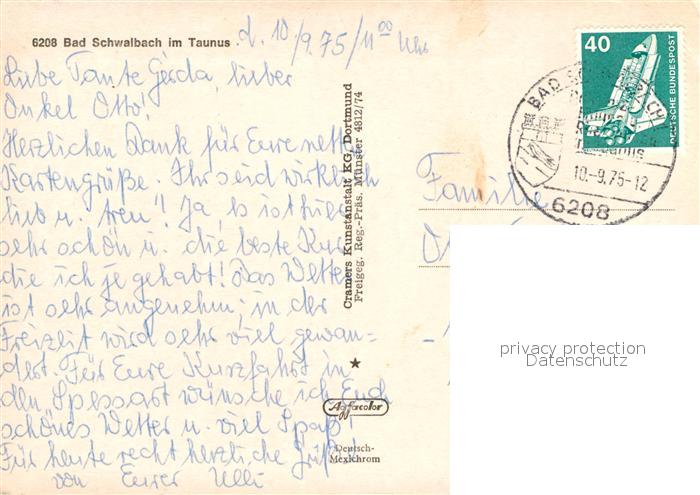 6208 Bad Schwalbach im Taunus
d. 10/9.75/11 00 Uhr
Liebe Tante Gerda, lieber
Onkel Otto!
Herzlichen Dank für Eure netten
Kartengrüße. Ihr seid wirklich
lieb u. treu! Ja, es ist hier
sehr schön u. die beste Kur
die ich je gehabt! Das Wetter
ist sehr angenehm; in der
Freizeit wird sehr viel gewan-
dert. Für Eure Kurzfahrt in
den Spessart wünsche ich Euch
schönes Wetter u. viel Spaß!
Für heute recht herzliche Grüße
von Eurer Ulli
Cramers Kunstanstalt KG, Dortmund
Freigeg. Reg.-Präs. Münster 4812/74
Agfacolor
Deutsch-
Mexichrom
40
DEUTSCHE BUNDESPOST
BAD
10.-9.75-12
6208
Familie
privacy protection
Datenschutz